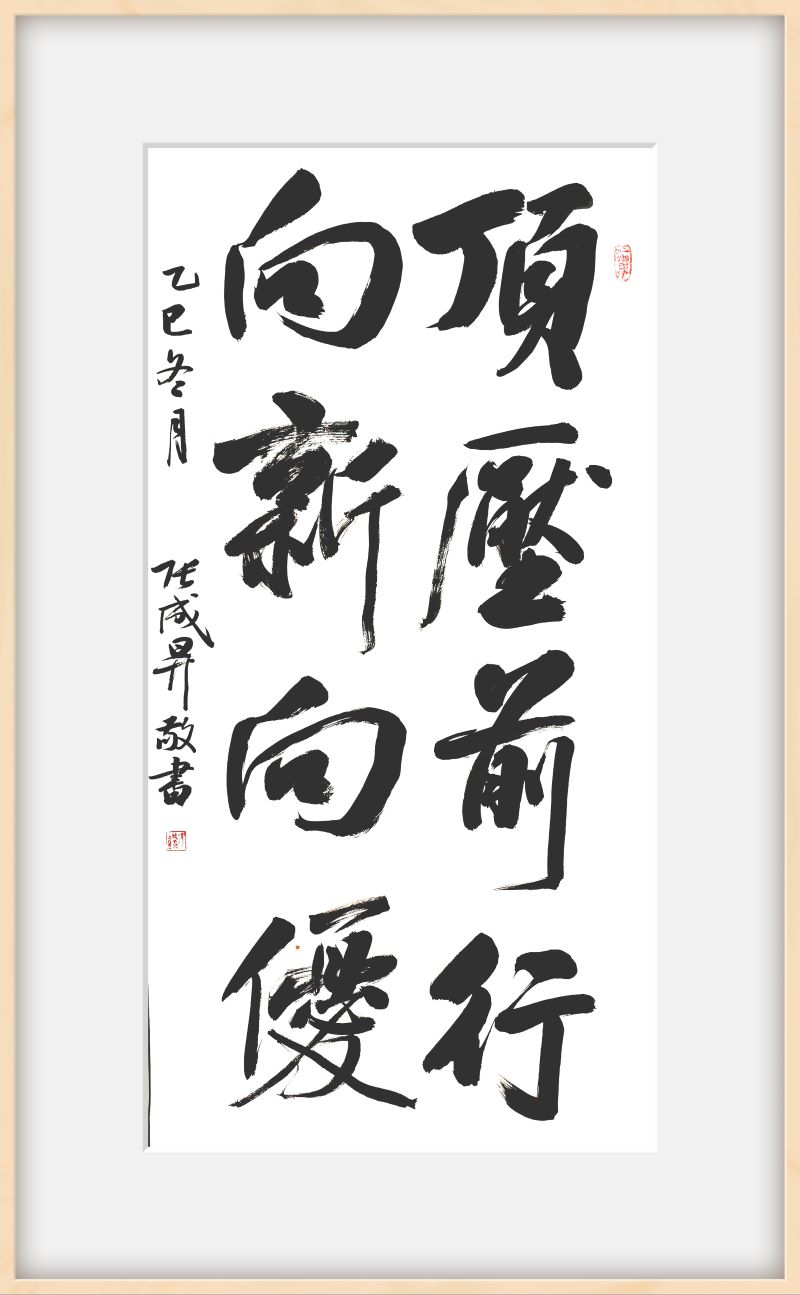 頂壓前行
向新向優
乙巳冬月
张成昇敬書